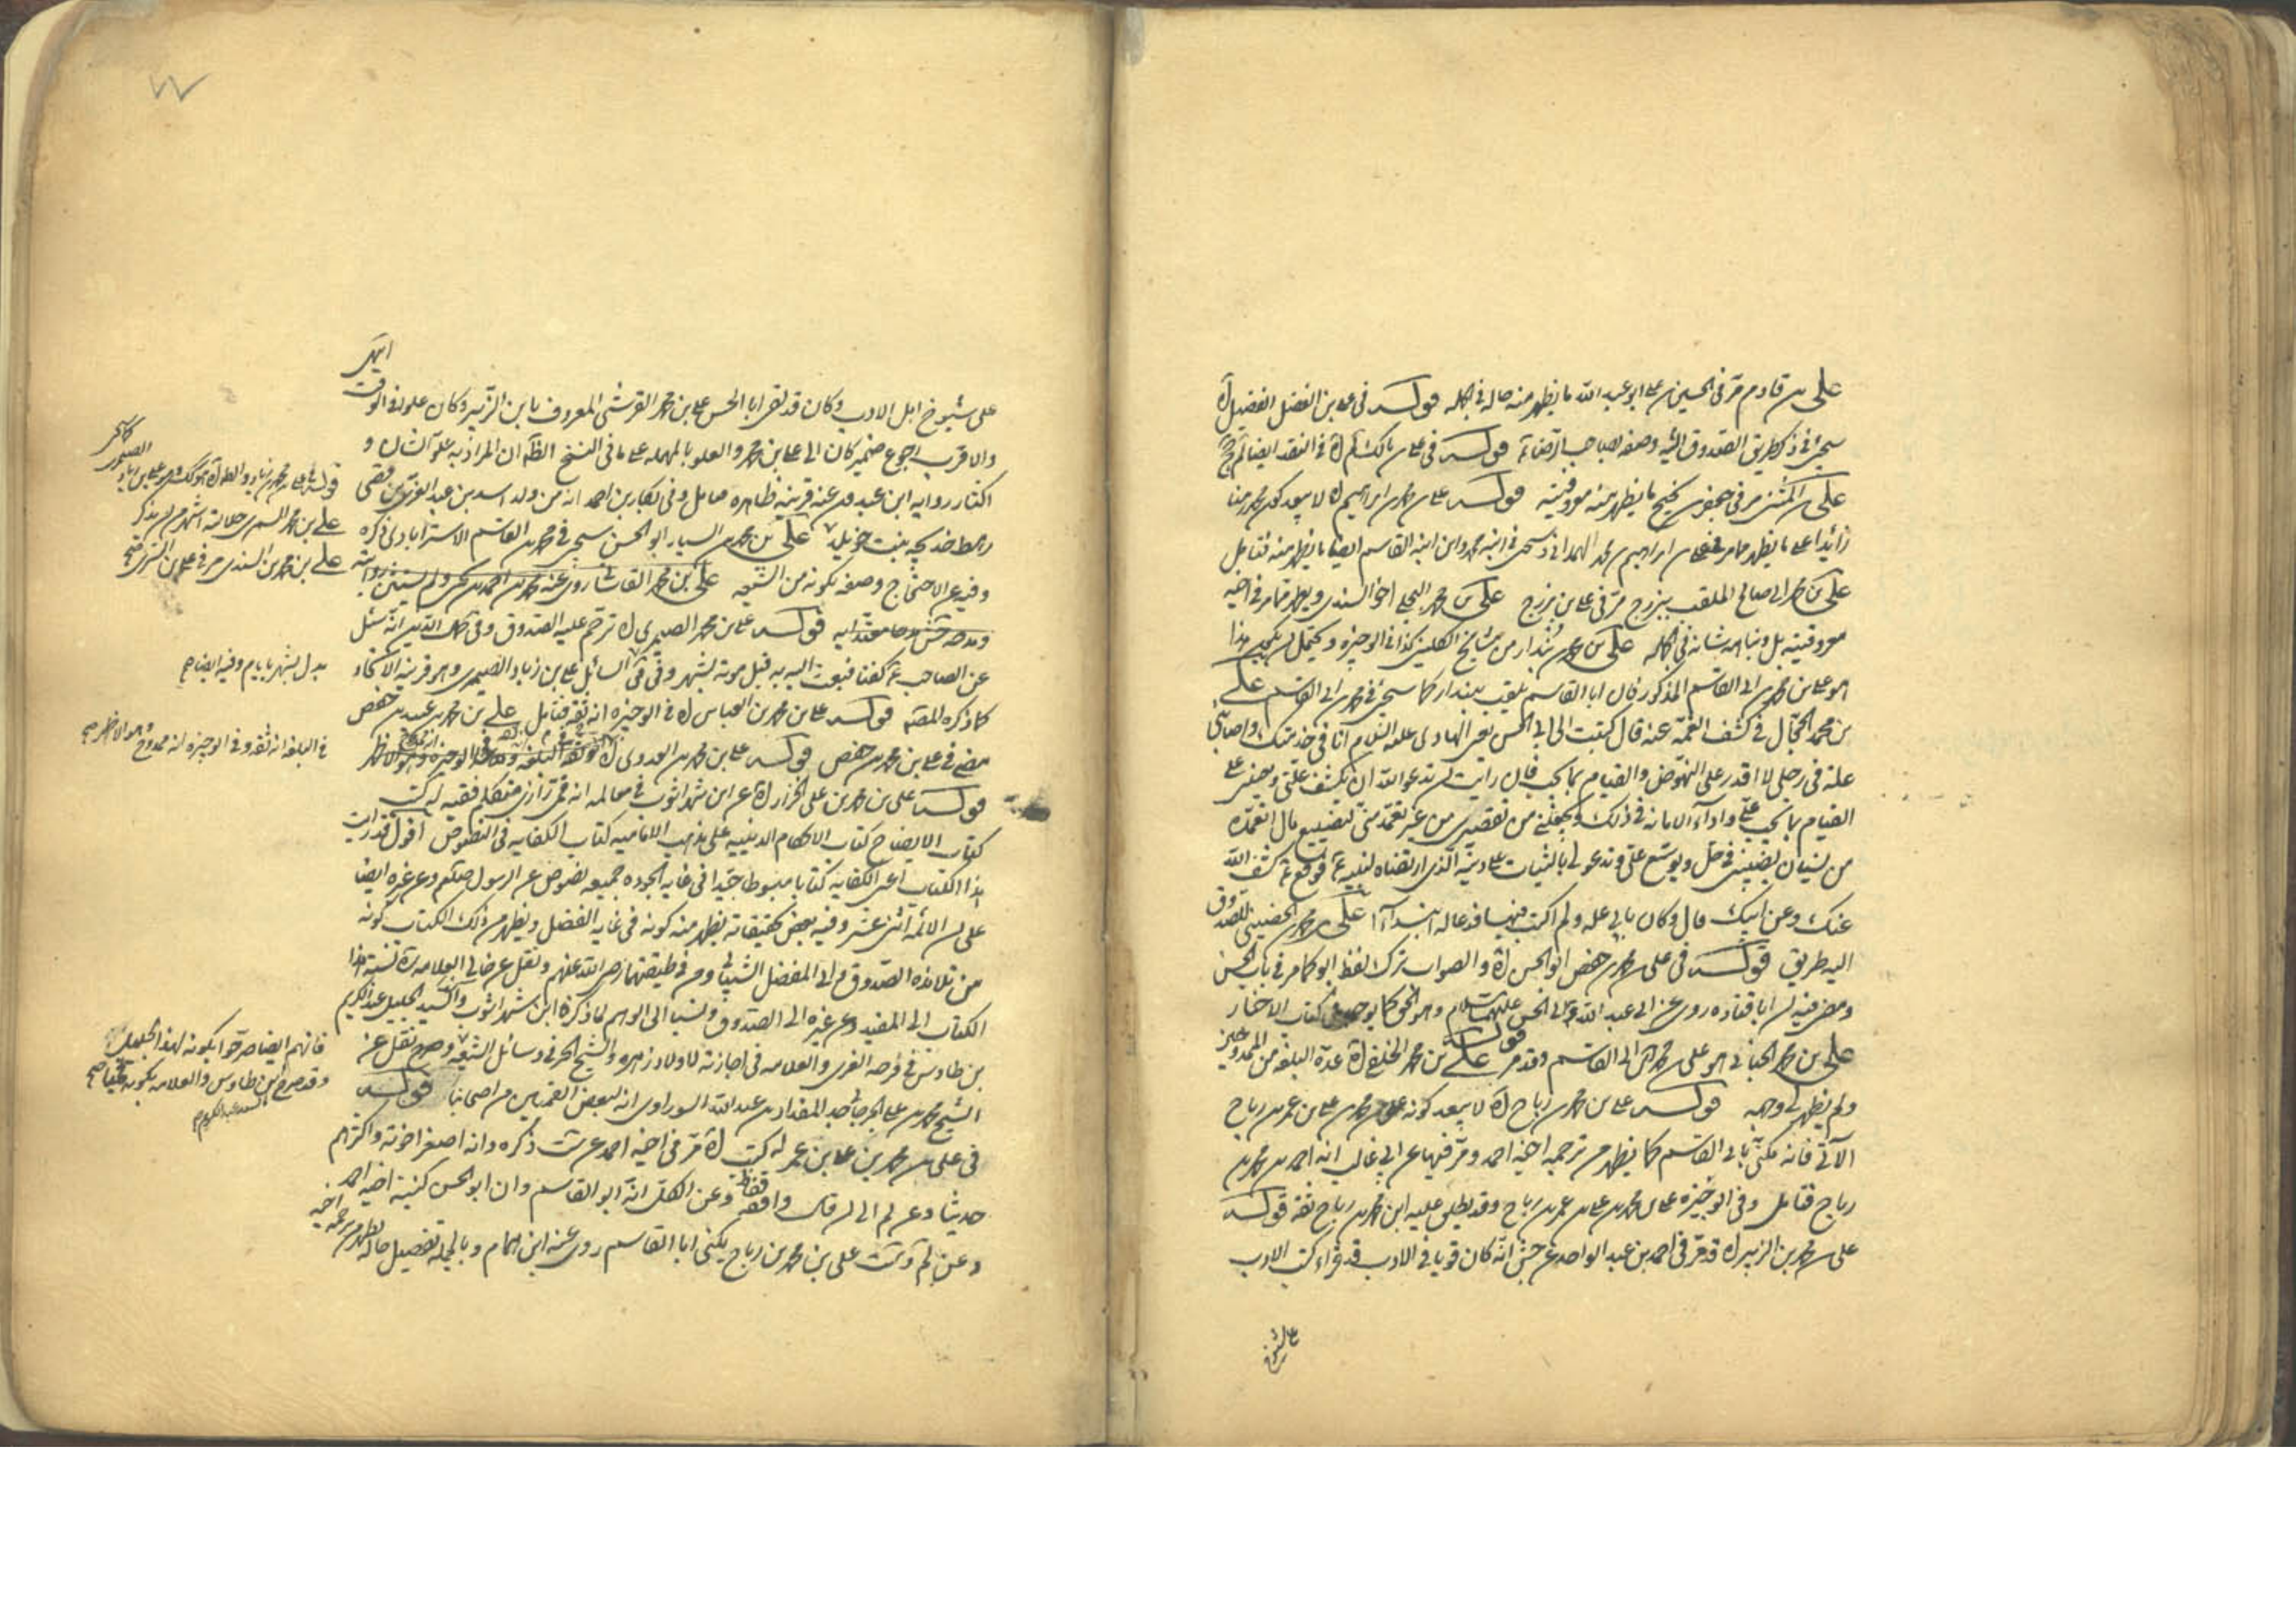 علي بن قادم مر في الحسين بن علي ابو عبد الله ما يظهر منه حاله في الجملة قوله في علي بن الفضل الفضيل اه
سيجئ في ذكر طريق الصدوق اليه وصفه بصاحب الرضا ع قوله في علي بن مالك اه في النقد ايضا لم
علي بن المثنى مر في جعفر بن نجيح ما يظهر منه معروفيته قوله علي بن محمد بن ابراهيم اه لا يبعد كون محمد هنا
زائدا علي ما يظهر مما مر في علي بن ابراهيم بن محمد الهمداني وسيجئ في ابنه محمد وابن ابنه القاسم ايضا ما يظهر منه فتامل
علي بن محمد ابي صالح الملقب ببزرج مر في علي بن بزرج علي بن محمد البجلي اخو السندي ويظهر مما مر في اخيه
معروفيته بل ونباهة شانه في الجملة علي بن محمد بن بندار من مشايخ الكليني كذا في الوجيزه ويحتمل ان يكون هذا
هو علي بن محمد بن ابي القاسم المذكور فان ابا القاسم يلقب ببندار كما سيجئ في محمد بن ابي القاسم علي
بن محمد الحجال في كشف الغمة عنه قال كتبت الى ابي الحسن يعني الهادي عليه السلام انا في خدمتك واصابني
علة في رجلي لا اقدر على النهوض والقيام بما يجب فان رايت ان تدعو الله ان يكشف علتي ويعينني علي
القيام بما يجب علي واداء الامانة في ذلك ويجعلني من تقصيري من غير تعمد مني لتضييع مال اتعمده
من نسيان يصيبني في حل ويوسع علي وتدعو لي بالثبات علي دينه الذي ارتضاه لنبيه ع فوقع ع كشف الله
عنك وعن ابيك قال وكان بابي علة ولم اكتب فيها فدعا له ابتداءا علي بن محمد الحضيني للصدوق
اليه طريق قوله في علي بن محمد بن حفص ابو الحسن اه والصواب ترك لفظ ابو كما مر في باب الحسن
ومضى فيه ان ابا قتادة روى عن ابي عبد الله وابي الحسن عليهما السلام وهو الحق كما يوجد في كتاب الاخبار
علي بن محمد الجنابي هو علي بن محمد بن ابي القاسم وقد مر قوله علي بن محمد الخلقي اه عده البلغة من الممدوحين
ولم يظهر لي وجهه قوله علي بن محمد بن رباح اه لا يبعد كونه علي بن محمد بن علي بن عمر بن رباح
الآتي فانه مكنى بابي القاسم كما يظهر من ترجمة اخيه احمد ومر فيها عن ابي غالب انه احمد بن محمد بن
رباح فتامل وفي الوجيزه علي بن محمد بن علي بن عمر بن رباح وقد يطلق عليه ابن محمد بن رباح ثقة قوله
علي بن محمد بن الزبير اه قد مر في احمد بن عبد الواحد عن جش انه كان قويا في الادب قد قراء كتب الادب
على شيوخ
انتهى
على شيوخ اهل الادب وكان قد لقى ابا الحسن علي بن محمد القرشي المعروف بابن الزبير وكان علوا في الوقت
والاقرب رجوع ضمير كان الى علي بن محمد والعلو بالمهملة علي ما في النسخ الظاهر ان المراد به علو الشان و
اكثار رواية ابن عبدون عنه قرينة ظاهرة فتامل وفي بكار بن احمد انه من ولد اسد بن عبد العزى بن قصى
رهط خديجة بنت خويلد علي بن محمد بن السيار ابو الحسن سيجئ في محمد بن القاسم الاسترابادي ذكره
وفيه عن الاحتجاج وصفه بكونه من الشيعة علي بن محمد القاشاني روى عنه محمد بن احمد بن يحيى ولم يستثن روايته
قوله علي بن محمد الصيمري اه ترحم عليه الصدوق وفي كمال الدين انه سئل
عن الصاحب ع كفنا فبعث اليه به قبل موته بشهر وفي في السائل علي بن زياد الصيمري وهو قرينة الاتحاد
كما ذكره المصنف قوله علي بن محمد بن العباس اه في الوجيزه انه ثقة فتامل علي بن محمد بن عبيد بن حفص
مضى في علي بن محمد بن حفص قوله علي بن محمد بن العدوي اه
قوله علي بن محمد بن علي الخزاز اه عن ابن شهراشوب في معالمه انه قمي رازي متكلم فقيه له كتب
كتاب الايضاح كتاب الاحكام الدينية على مذهب الامامية كتاب الكفاية في النصوص اقول قد رايت
هذا الكتاب اعني الكفاية كتابا مبسوطا جيدا في غاية الجودة جميعه نصوص عن الرسول صلعم وعن غيره ايضا
على ان الائمة اثنى عشر وفيه بعض تحقيقاته يظهر منه كونه في غاية الفضل ويظهر من ذلك الكتاب كونه
من تلامذة الصدوق وابي المفضل الشيباني ومن في طبقتهما رضي الله عنهم ونقل عن خالي العلامة ره نسبة هذا
الكتاب الى المفيد وعن غيره الى الصدوق ونسبا الى الوهم لما ذكره ابن شهراشوب والسيد الجليل عبد الكريم
بن طاوس في فرحة الغري والعلامة في اجازته لاولاد زهره والشيخ الحر في وسائل الشيعة وصرح نقل عن
الشيخ محمد بن علي الجرجاني جد المقداد بن عبد الله السوراوي انه لبعض القميين من اصحابنا قوله
في علي بن محمد بن علي بن عمر له كتب اه مر في اخيه احمد عن ست ذكره وانه اصغر اخوته واكثرهم
حديثا وعن لم الى ان قال واقفه فقط وعن الكل انه ابو القاسم وان ابو الحسن كنية اخيه احمد
وعن لم وست علي بن محمد بن رباح يكنى ابا القاسم روى عنه ابن همام وبالجملة تفصيل حاله يظهر من ترجمة اخيه
علي بن محمد السمري جلالته اشهر من ان يذكر
علي بن محمد بن السندي مر في علي بن السري
بدل بشهر بايام وفيه ايضا
في البلغة انه ثقة وفي الوجيزه انه ممدوح وهو الاظهر
فانهم ايضا صرحوا بكونه لهذا الجليل
وقد صرح ابن طاوس والعلامة بكونه قميا
السيد عبد الكريم